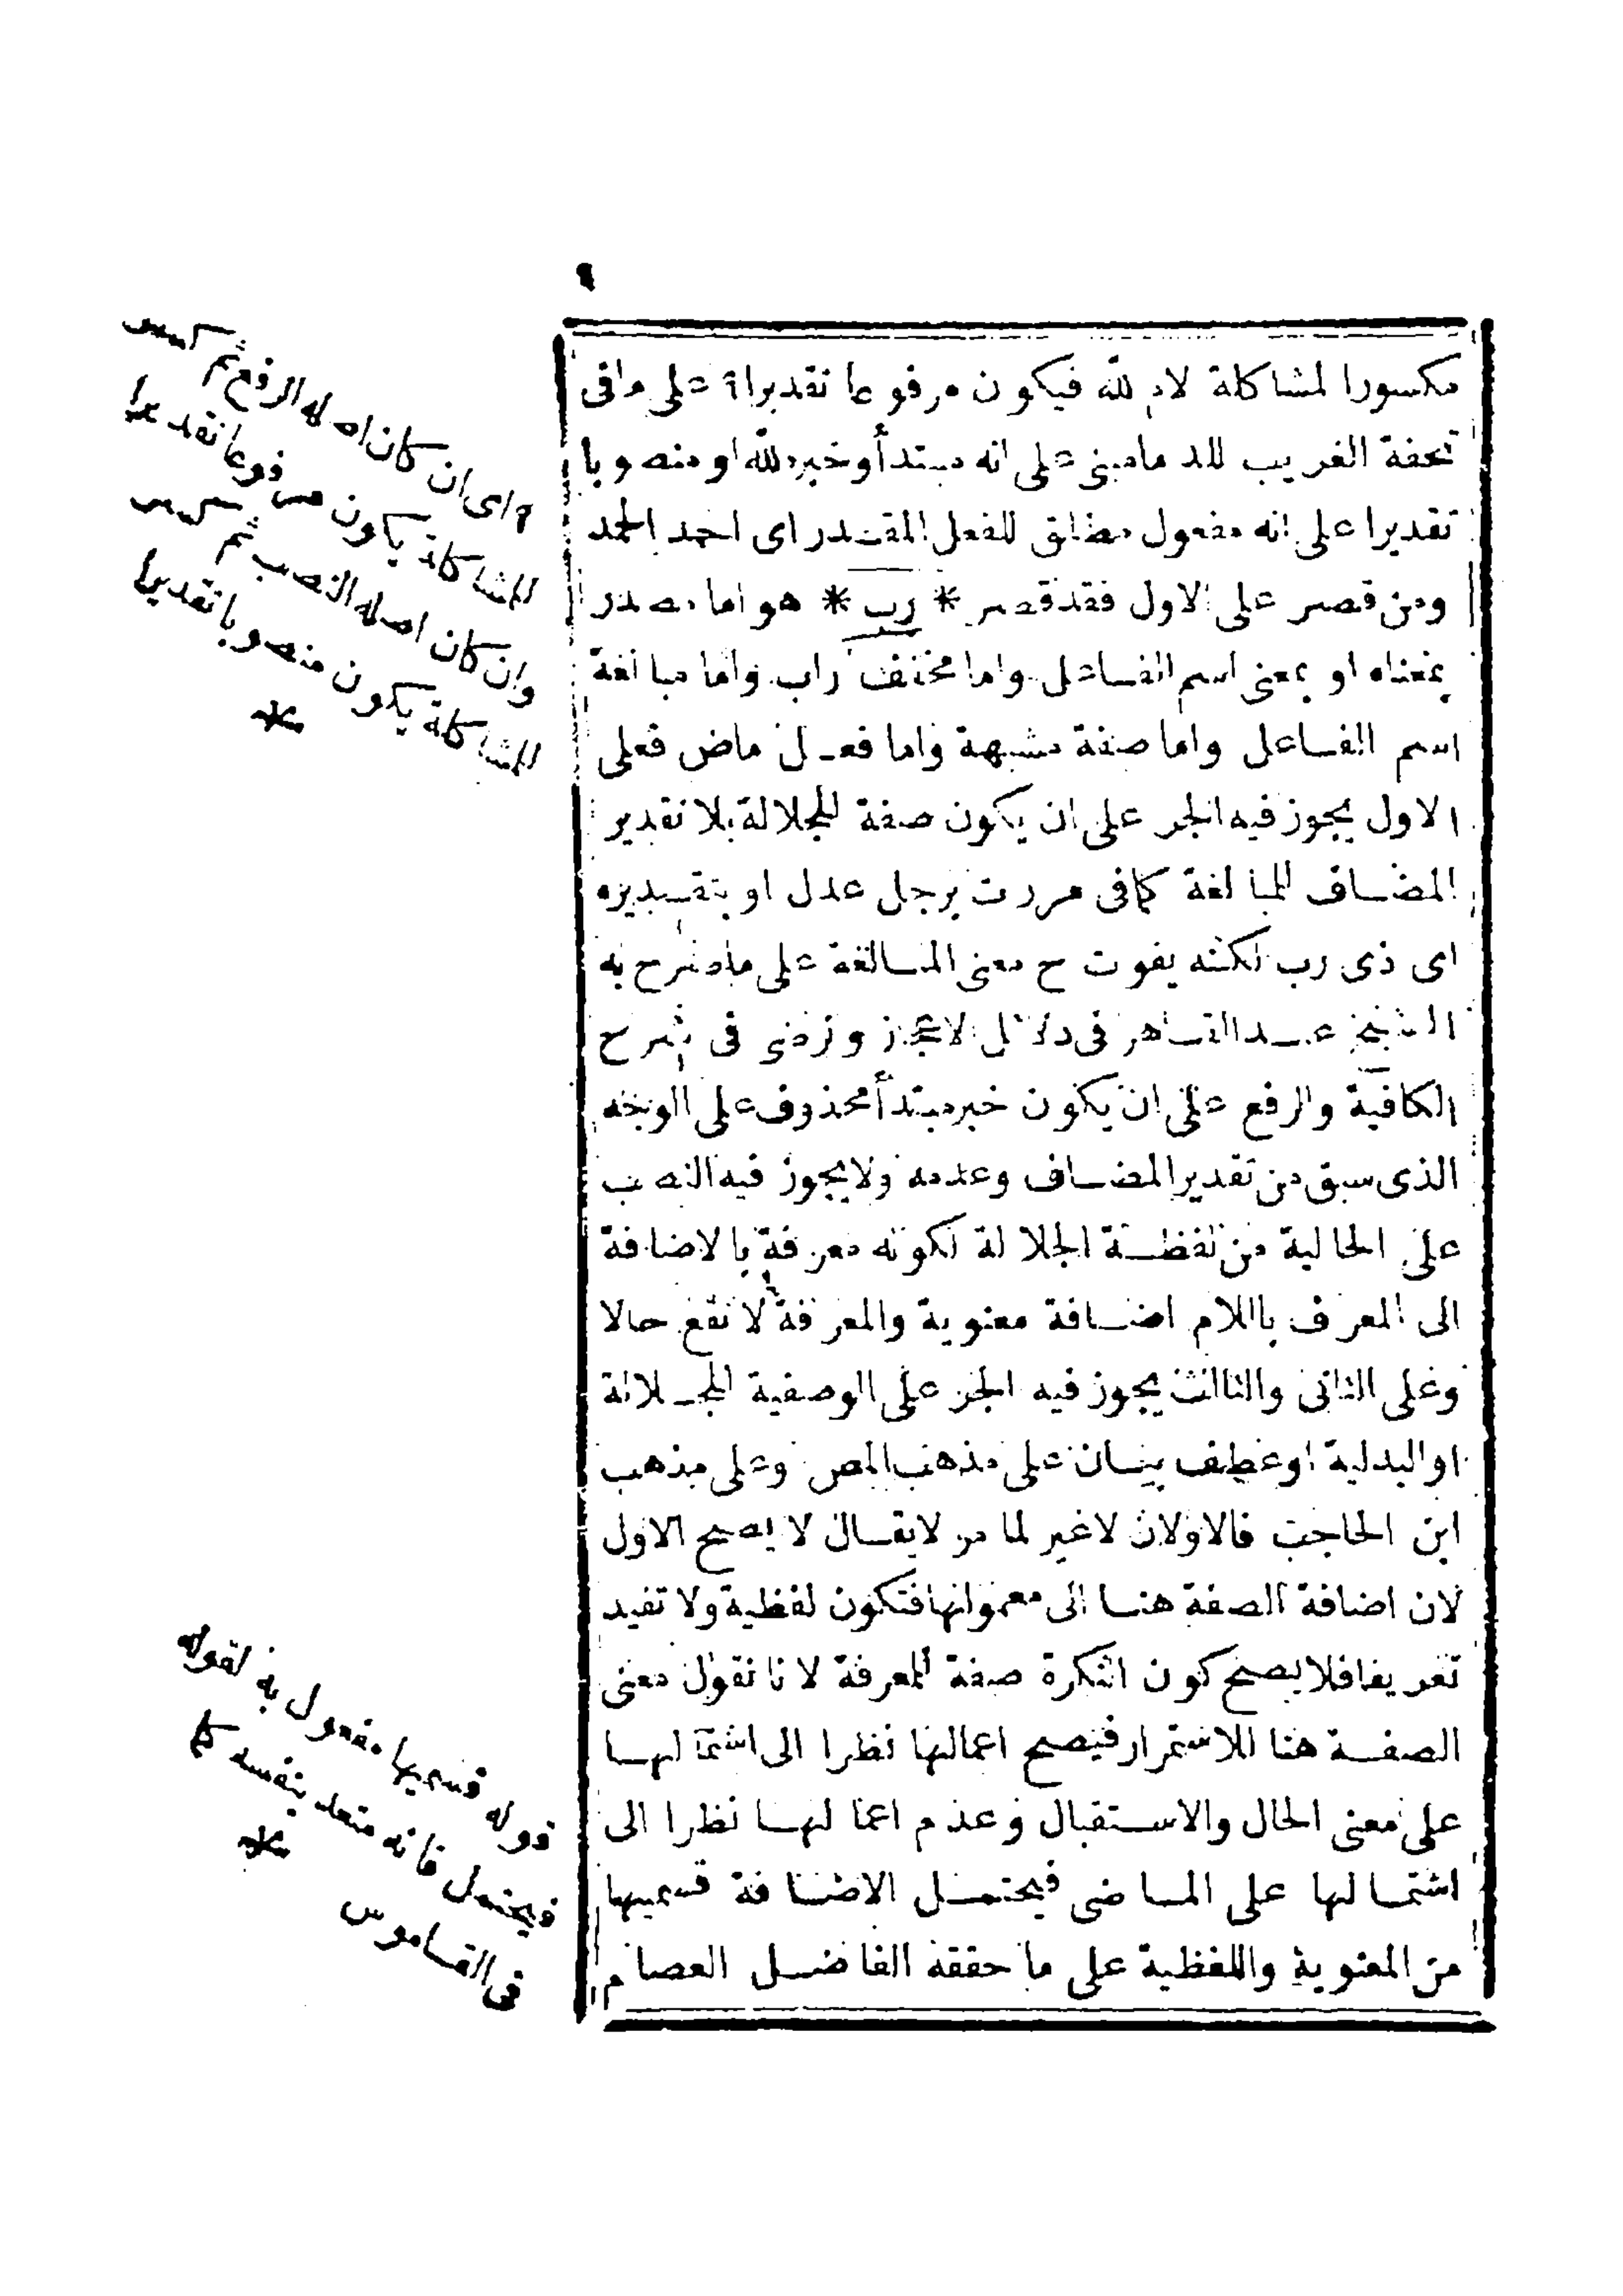 ٩
مكسورا لمشاكلة لام لله فيكون مرفوعا تقديرا٩ على مافى
تحفة الغريب للدمامينى على انه مبتدأ وخبره لله او منصوبا
تقديرا على انه مفعول مطلق للفعل المقدر اى احمد الحمد
ومن قصر على الاول فقد قصر * رب * هو اما مصدر
بمعناه او بمعنى اسم الفاعل واما مخفف راب واما مبالغة
اسم الفاعل واما صفة مشبهة واما فعل ماض فعلى
الاول يجوز فيه الجر على ان يكون صفة للجلالة بلا تقدير
المضاف للمبالغة كمافى مررت برجل عدل او بتقديره
اى ذى رب لكنه يفوت ح معنى المبالغة على ماصرح به
الشيخ عبد القاهر فى دلائل الاعجاز ورضى فى شرح
الكافية والرفع على ان يكون خبر مبتدأ محذوف على الوجه
الذى سبق من تقدير المضاف وعدمه ولا يجوز فيه النصب
على الحالية من لفظة الجلالة لكونه معرفة بالاضافة
الى المعرف باللام اضافة معنوية والمعرفة لا تقع حالا
وعلى الثانى والثالث يجوز فيه الجر على الوصفية للجلالة
او البدلية او عطف بيان على مذهب المص وعلى مذهب
ابن الحاجب فالاولان لاغير لما مر لايقال لا يصح الاول
لان اضافة الصفة هنا الى معمولها فتكون لفظية ولا تفيد
تعريفا فلا يصح كون النكرة صفة للمعرفة لانا نقول معنى
الصفة هنا للاستمرار فيصح اعمالها نظرا الى اشتمالها
على معنى الحال والاستقبال وعدم اعمالها نظرا الى
اشتمالها على الماضى فيحتمل الاضافة قسميها
من المعنوية واللفظية على ما حققه الفاضل العصام
٩ اى ان كان اصله الرفع ثم كسر
للمشاكلة يكون مرفوعا تقديرا
وان كان اصله النصب ثم كسر
للمشاكلة يكون منصوبا تقديرا
*
قوله قسميها مفعول به لقوله
فيحتمل فانه متعد بنفسه كما
فى القاموس *